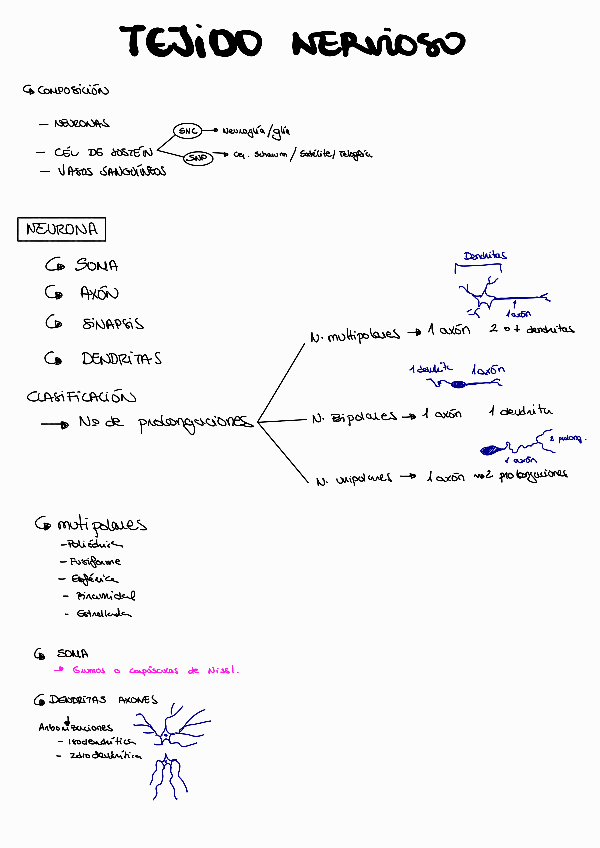 TEJIDO NERVIOSO
COMPOSICIÓN
- NEURONAS
- CÉL DE SOSTÉN
SNC → Neuroglía/glía
SNP → Cel. Schawm / Satélite/
- VASOS SANGUÍNEOS
NEURONA
SOMA
AXÓN
SINAPSIS
DENDRITAS
CLASIFICACIÓN
→ No de prolongaciones
Dendritas
1 axón
N. multipolares → 1 axón 2 o + dendritas
1 dendrite 1 axón
N. Bipolares → 1 axón 1 dendrita
2 prolong.
1 axón
N. unipolares → 1 axón → 2 prolongaciones
mutipolares
- Poliédrica
- Fusiforme
- Esférica
- Piramidal
- Estrellada
SOMA
→ Grumos o corpúsculos de Nissl.
DENDRITAS AXONES
Arborizaciones
- Isodendrítica